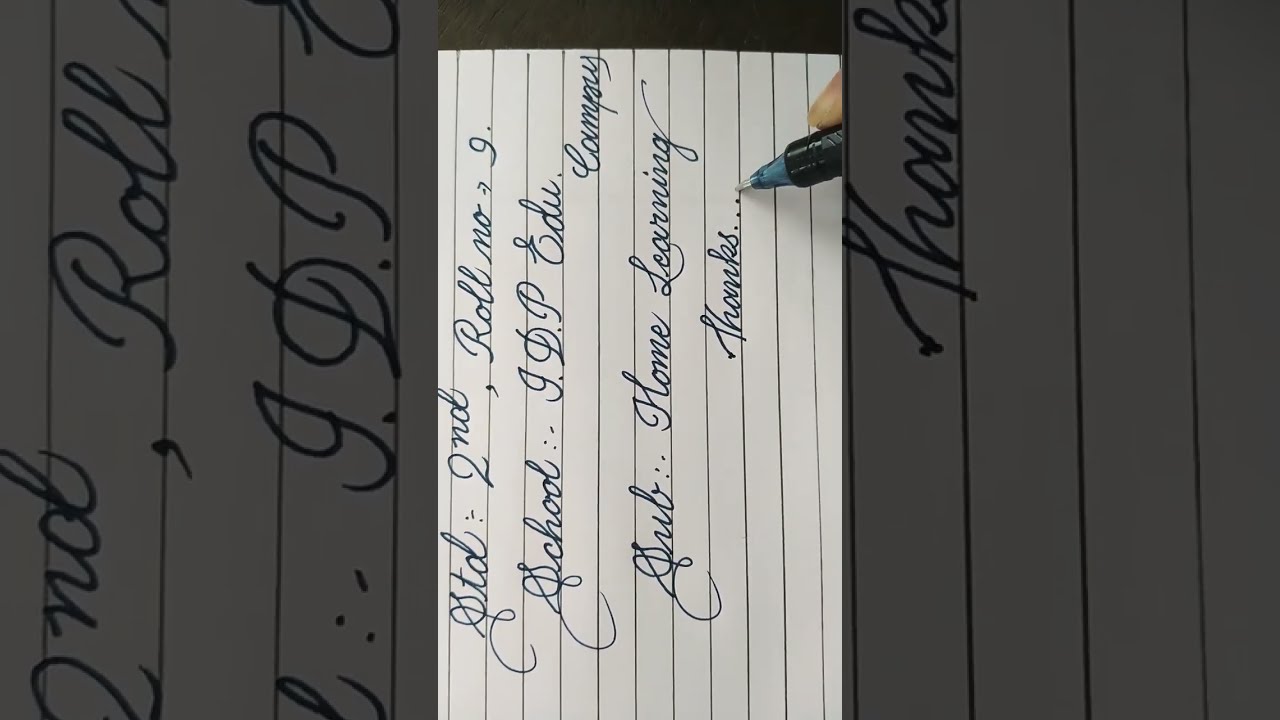 Std :- 2nd , Roll no → 9.
School :- I.D.P Edu.
Campus
Sub :- Home Learning
Thanks...